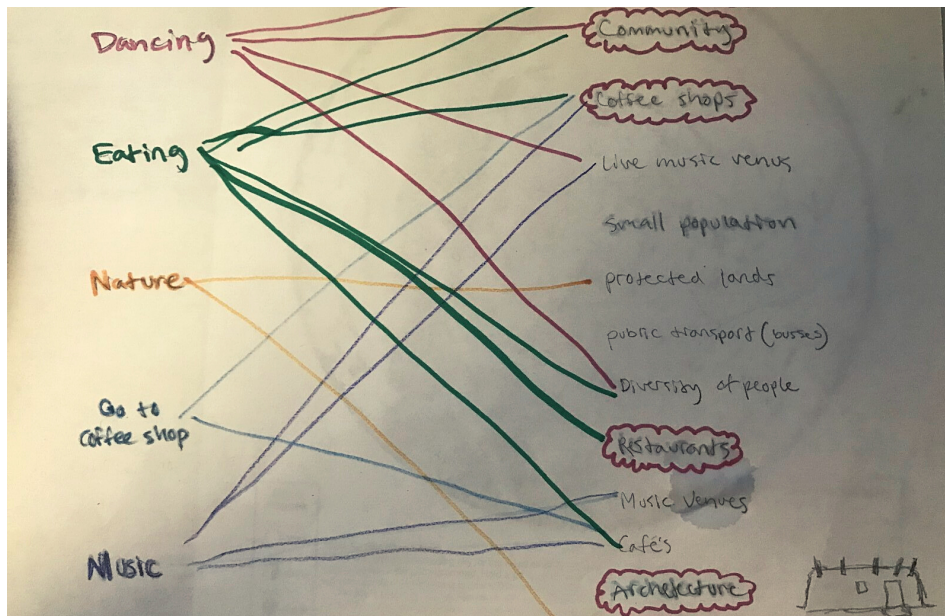 Dancing
Eating
Nature
Go to
coffee shop
Music
Community
Coffee shops
Live music venus
small population
protected lands
public transport (busses)
Diversity of people
Restaurants
Music Venues
Café's
Archetecture